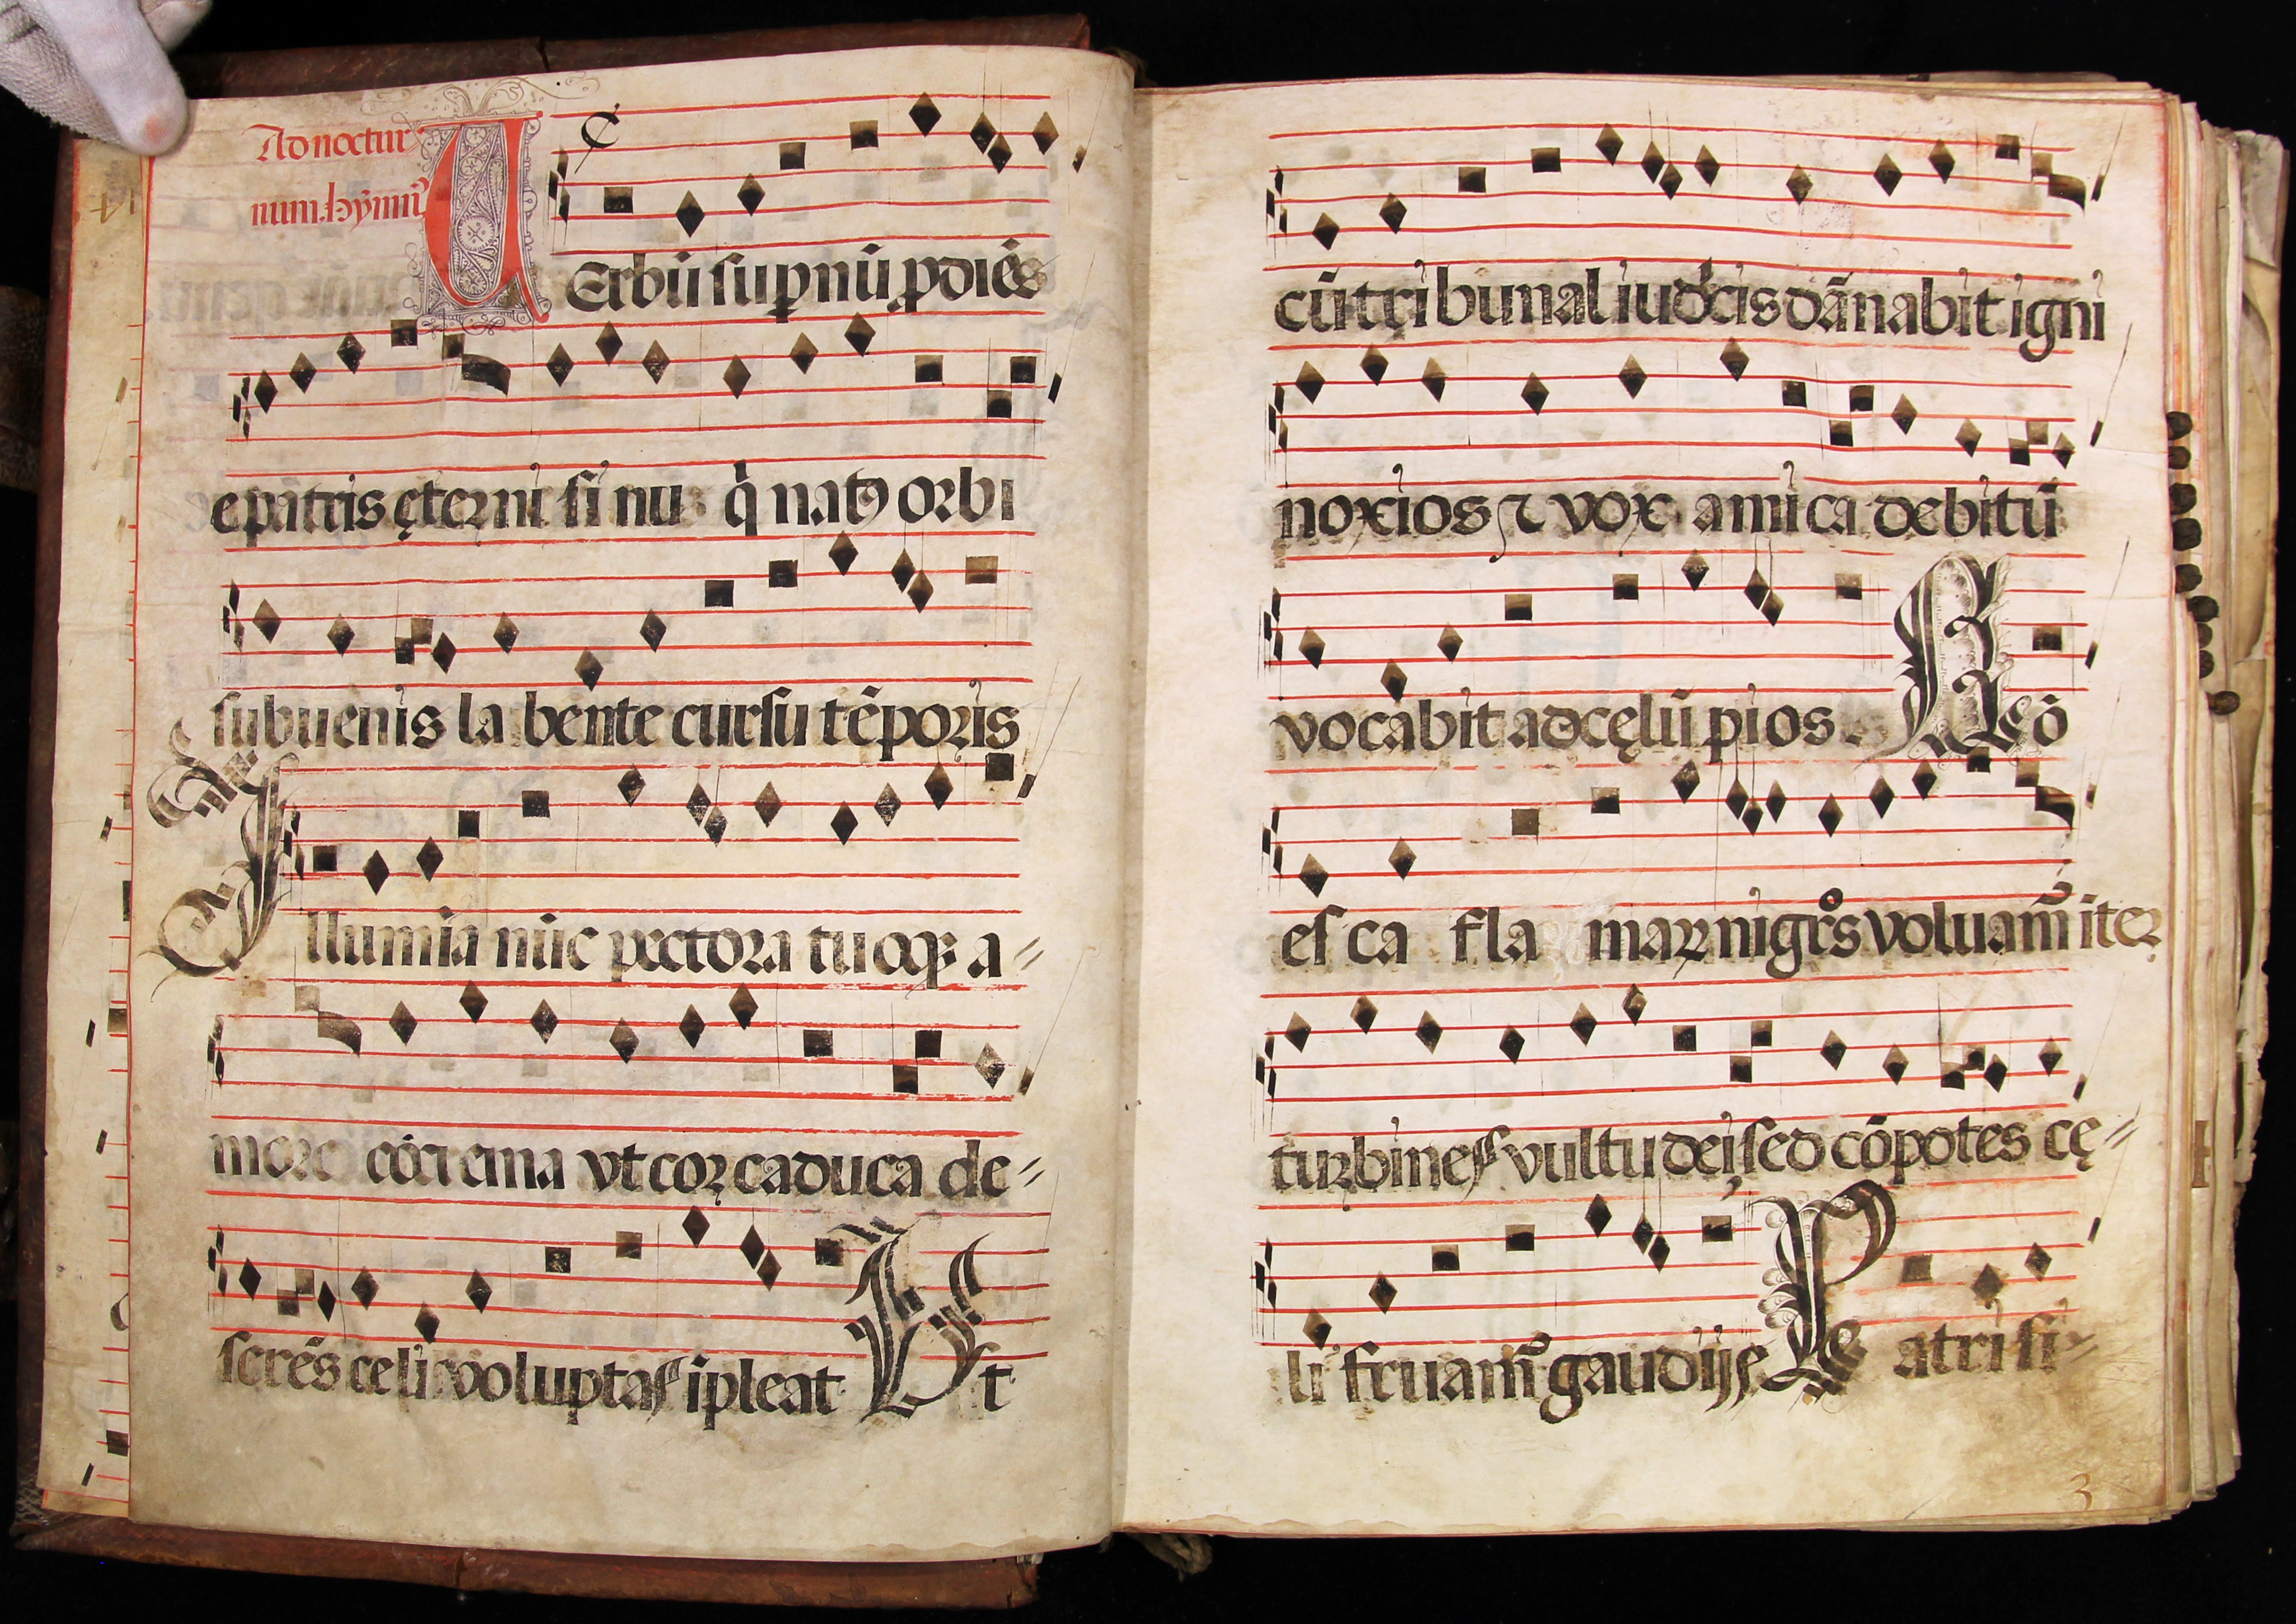 Ad noctur
num. hymn᷒
UErbū supnū pdiēs
e patris ęterni sinu q̇ natꝰ orbi
subuenis labente cursu tēporis
Illumia nūc pectora tuoqꝫ a=
more cōcrema vt cor caduca de=
serēs celi voluptas ipleat Vt
cū tribunal iudicis dānabit igni
noxios ⁊ vox amica debitū
vocabit ad cęlū pios. Nō
esca flamar nigros voluam̄ iter
turbines vultu dei sed cōpotes cę=
li fruam̄ gaudijs Patri si=
3